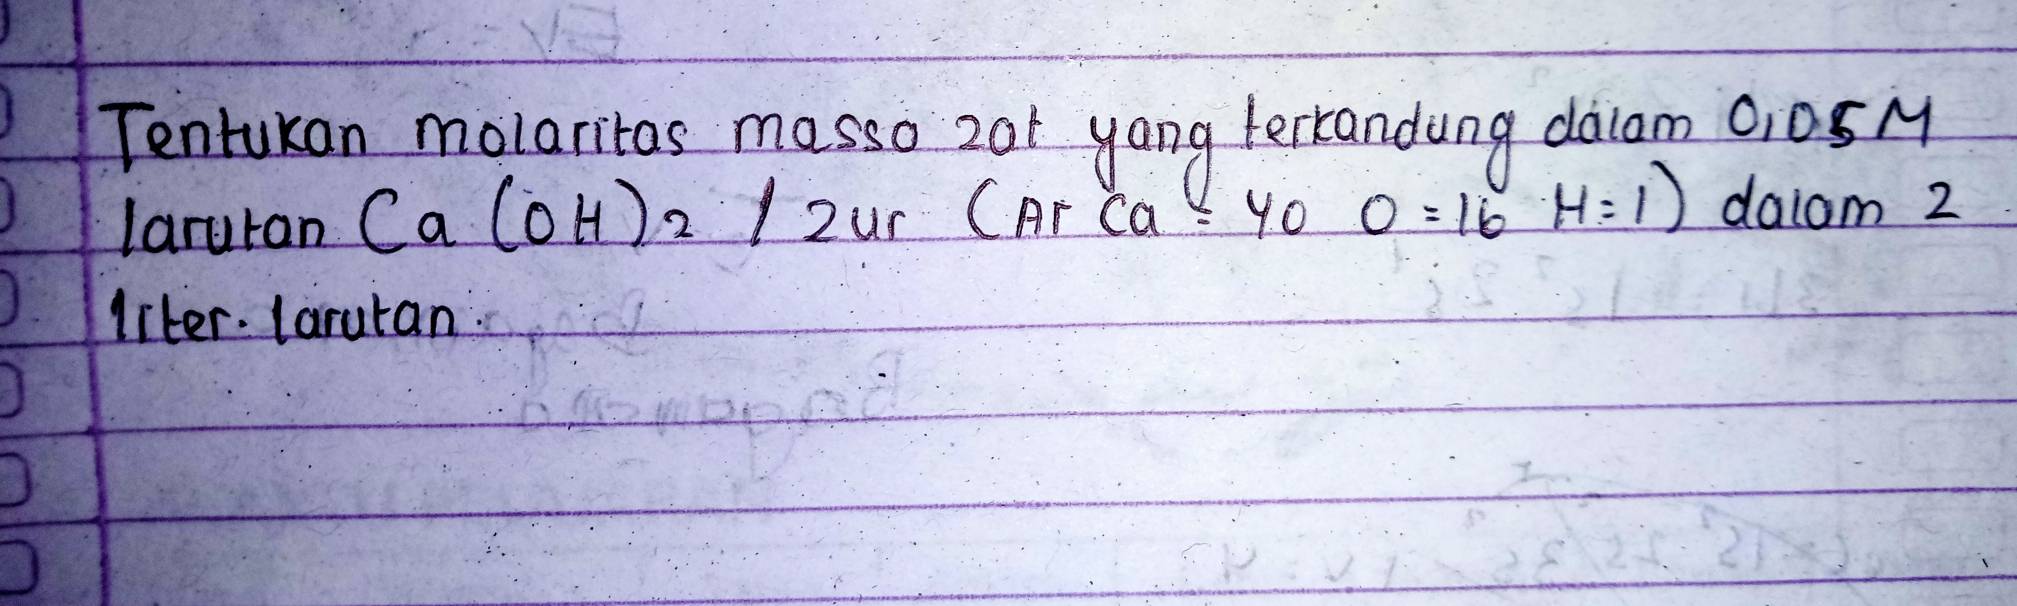 Tentukan molaritas massa zat yang terkandung dalam 0,05 M
larutan Ca(OH)2 / 2ur (Ar Ca = 40 O = 16 H = 1) dalam 2
liter. larutan.